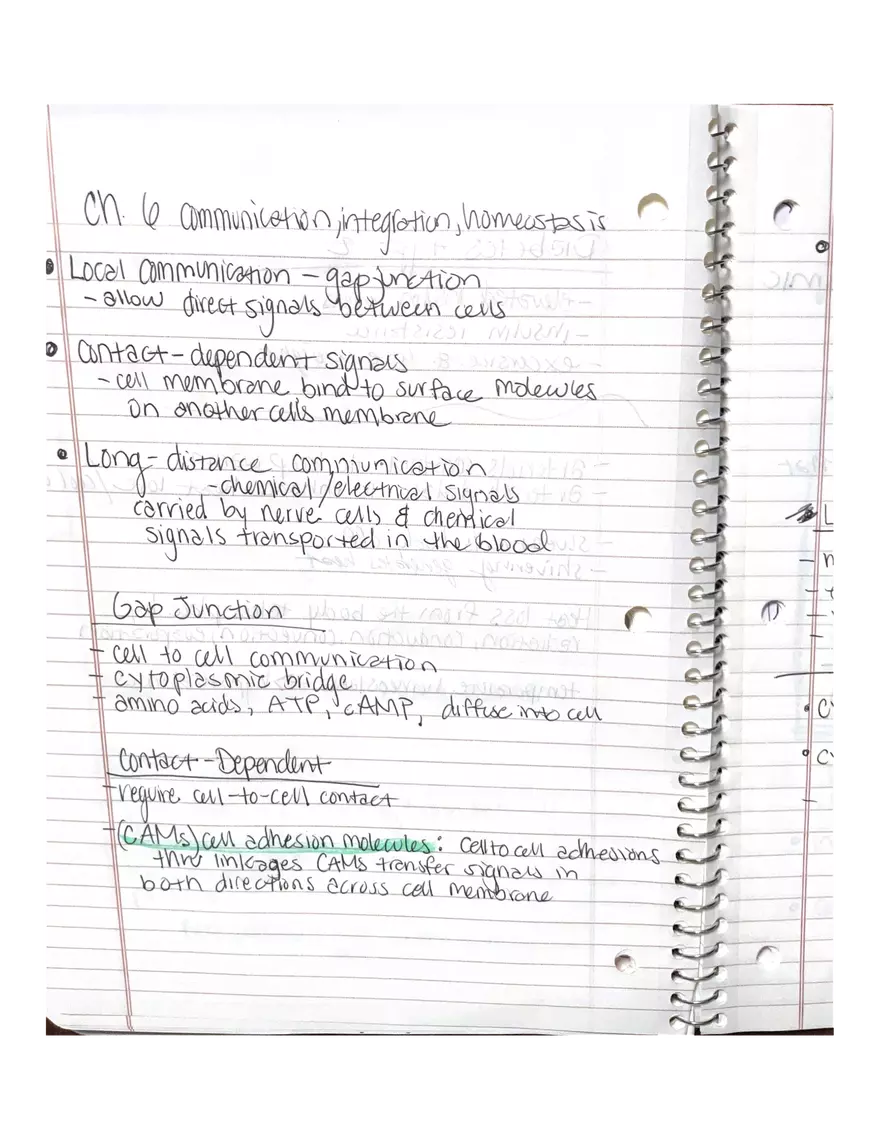 Ch. 6 communication, integration, homeostasis
• Local Communication - gap junction
- allow direct signals between cells
• Contact-dependent signals
- cell membrane bind to surface molecules
on another cells membrane
• Long-distance communication
- chemical/electrical signals
carried by nerve cells & chemical
signals transported in the blood
Gap Junction
- cell to cell communication
- cytoplasmic bridge
- amino acids, ATP, cAMP, diffuse into cell
Contact-Dependent
- require cell-to-cell contact
- (CAMs) cell adhesion molecules: Cell to cell adhesions
thru linkages CAMs transfer signals in
both directions across cell membrane